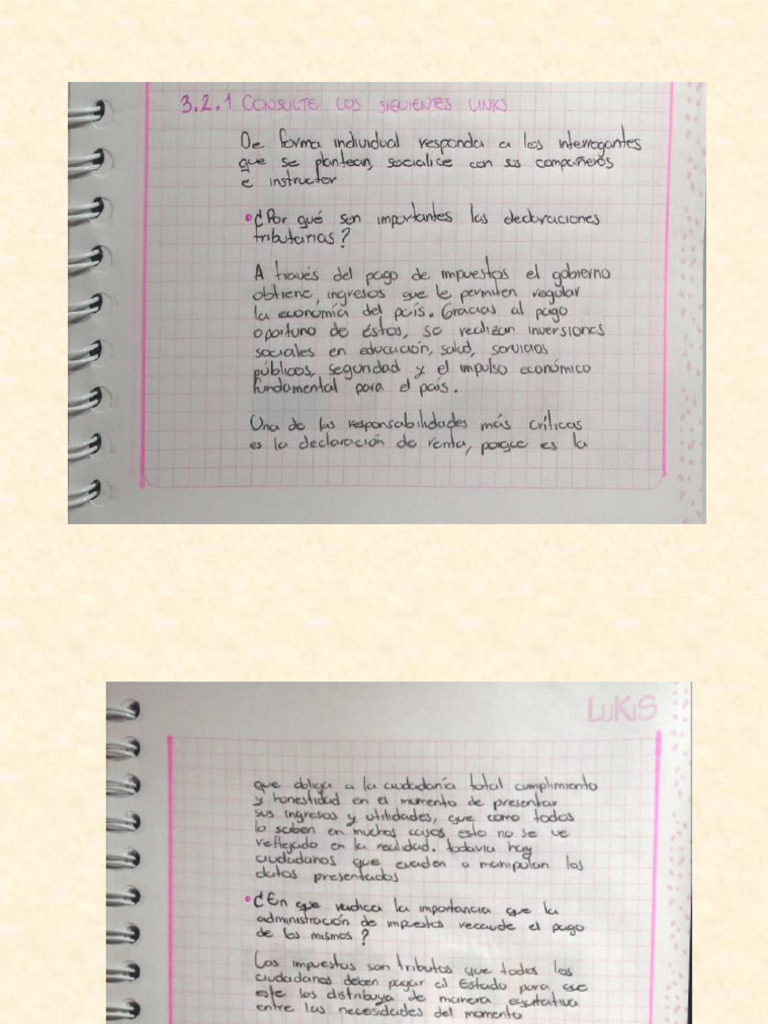 3.2.1 CONSULTE LOS SIGUIENTES LINKS
De forma individual responda a los interrogantes
que se plantean, socialice con sus compañeros
e instructor
¿Por qué son importantes las declaraciones
tributarias?
A través del pago de impuestos el gobierno
obtiene, ingresos que le permiten regular
la economía del país. Gracias al pago
oportuno de éstos, se realizan inversiones
sociales en educación, salud, servicios
públicos, seguridad y el impulso económico
fundamental para el país.
Una de las responsabilidades más críticas
es la declaración de renta, porque es la
LUKIS
que obliga a la ciudadanía total cumplimiento
y honestidad en el momento de presentar
sus ingresos y utilidades, que como todos
lo saben en muchos casos esto no se ve
reflejado en la realidad. todavía hay
ciudadanos que evaden o manipulan los
datos presentados
¿En que radica la importancia que la
administración de impuestos recaude el pago
de los mismos?
Los impuestos son tributos que todos los
ciudadanos deben pagar al Estado para que
este los distribuya de manera equitativa
entre las necesidades del momento